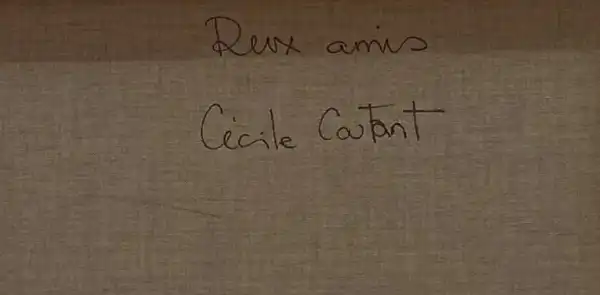 Deux amis
Cécile Coutant